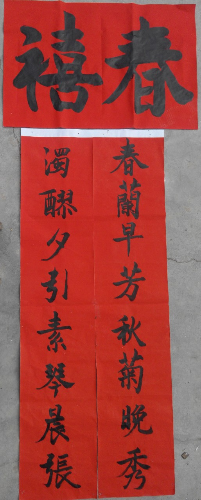 春禧
春蘭早芳秋菊晚秀
濁醪夕引素琴晨張